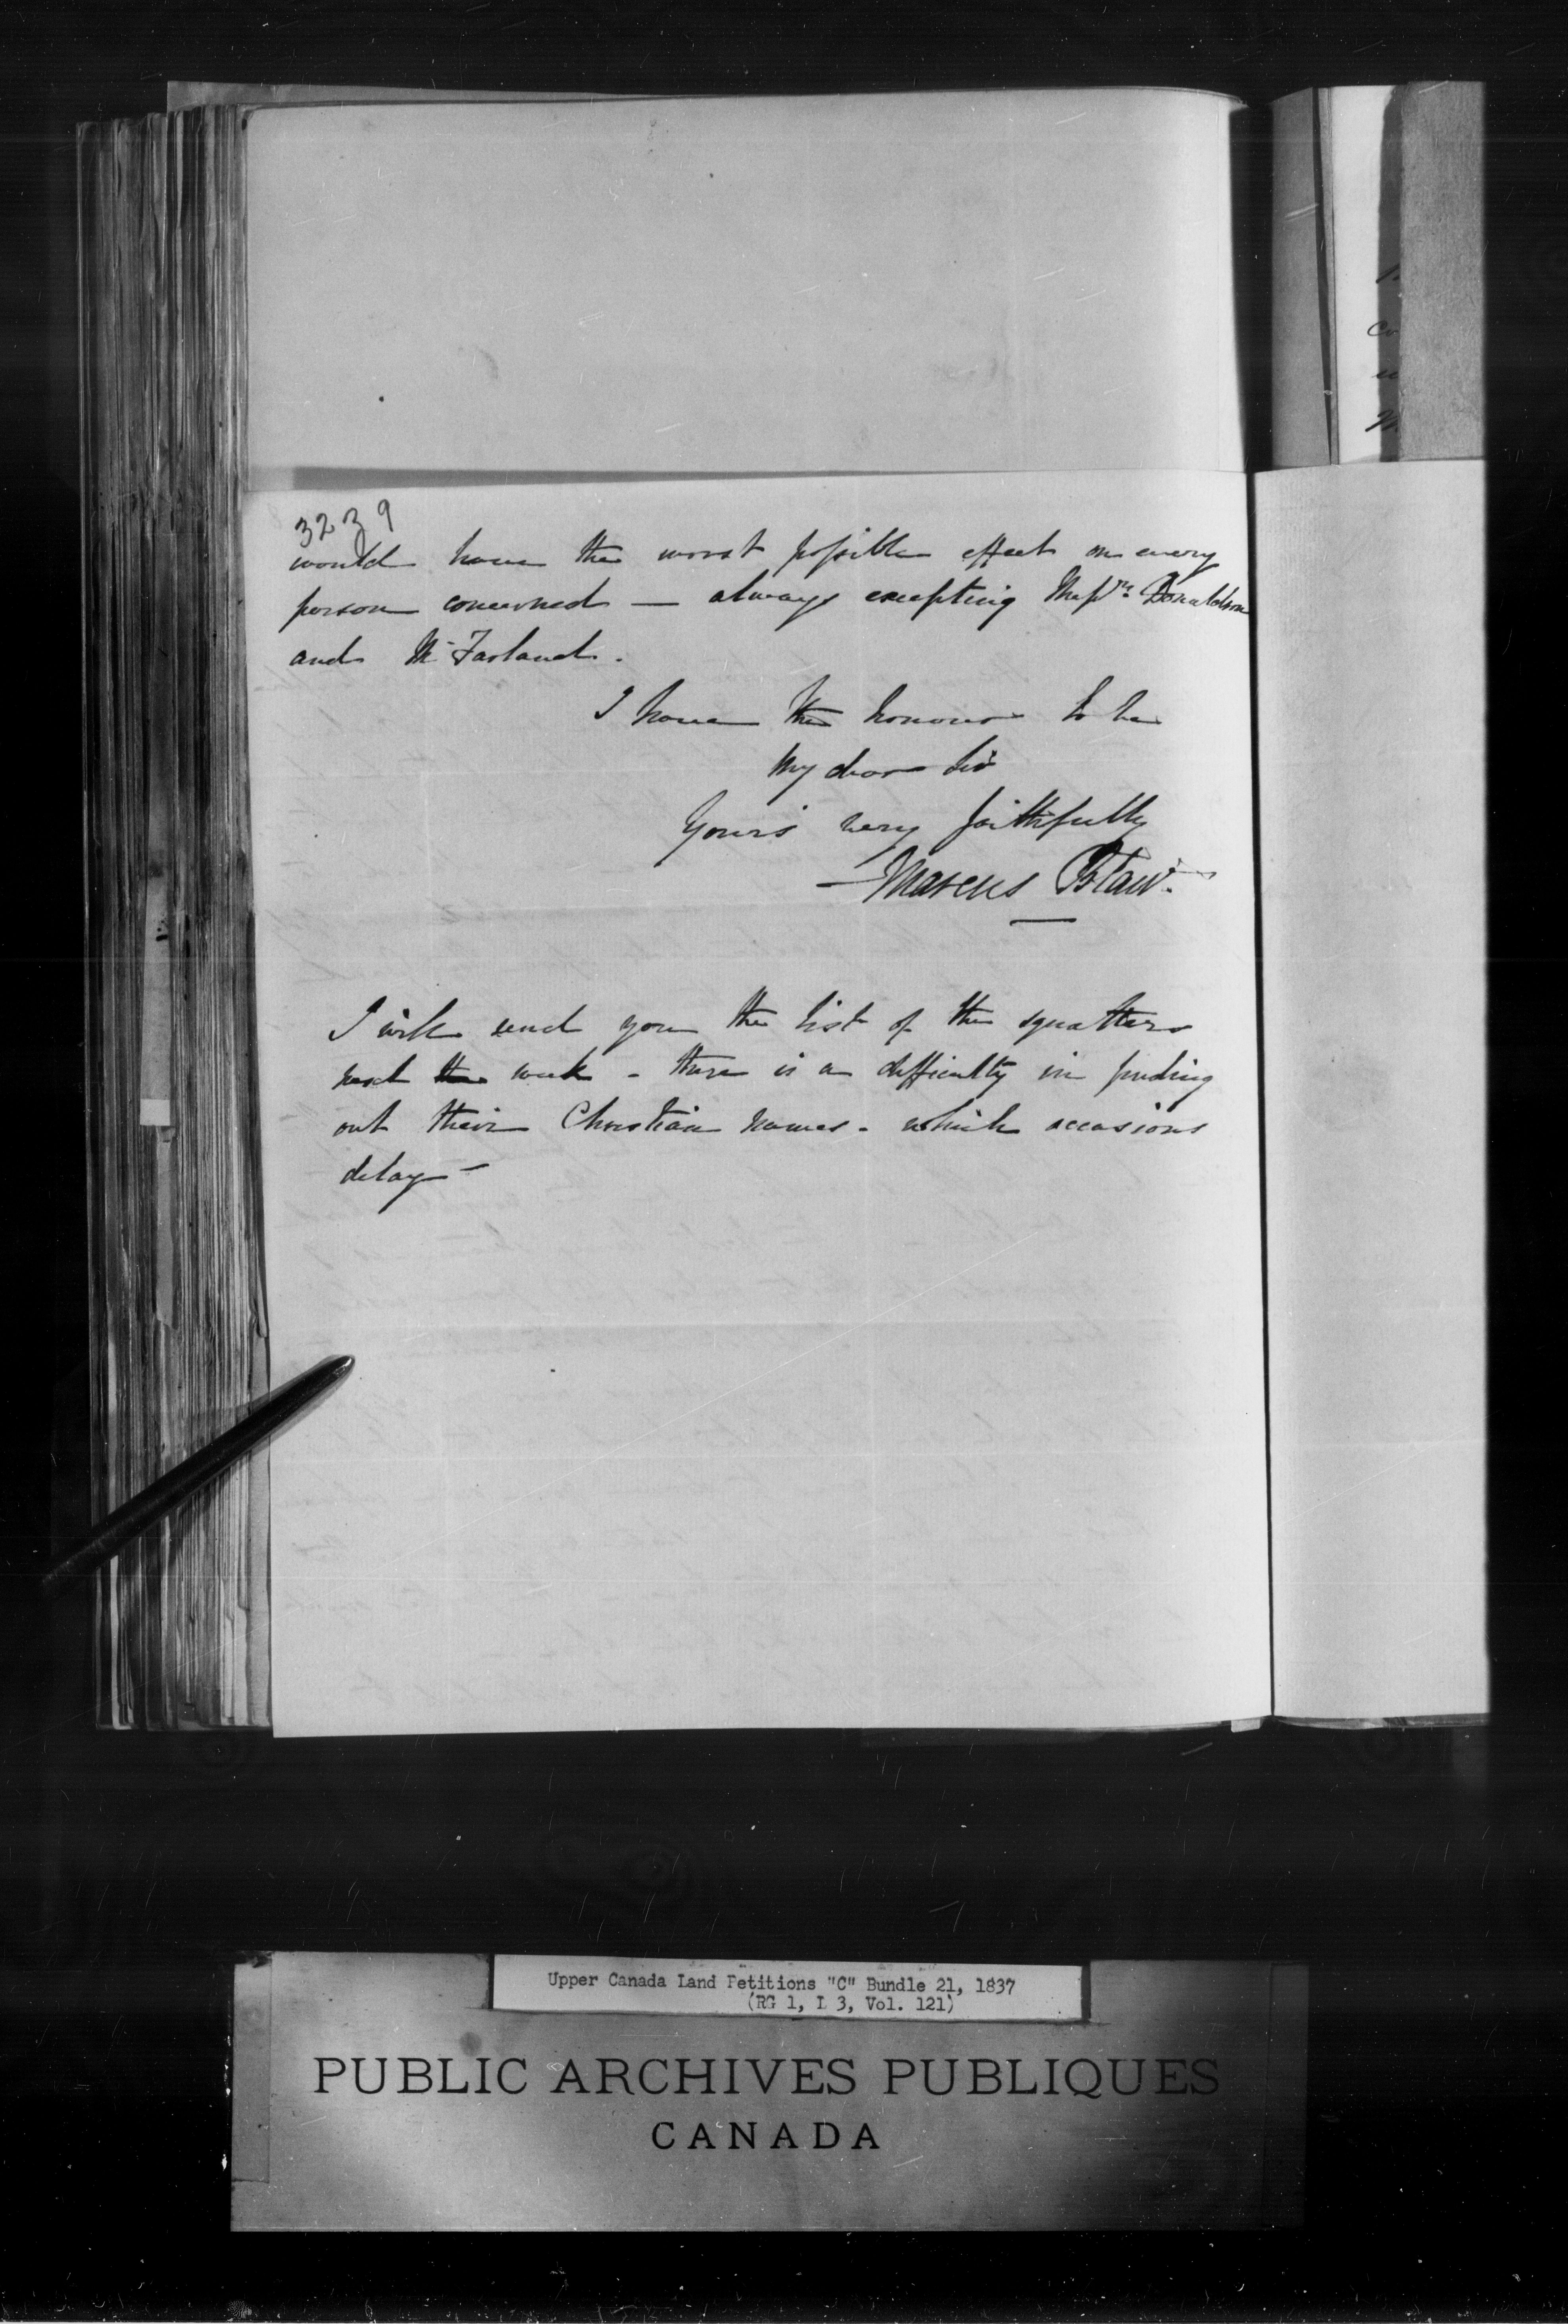 3239
would have the worst possible effect on every
person concerned — always excepting Messrs. Donaldson
and McFarland.
I have the honour to be
My dear Sir
Yours very faithfully
Marcus Blair
I will send you the list of the squatters
next the week - there is a difficulty in finding
out their Christian names - which occasions
delay —
Upper Canada Land Petitions "C" Bundle 21, 1837
(RG 1, L 3, Vol. 121)
PUBLIC ARCHIVES PUBLIQUES
CANADA